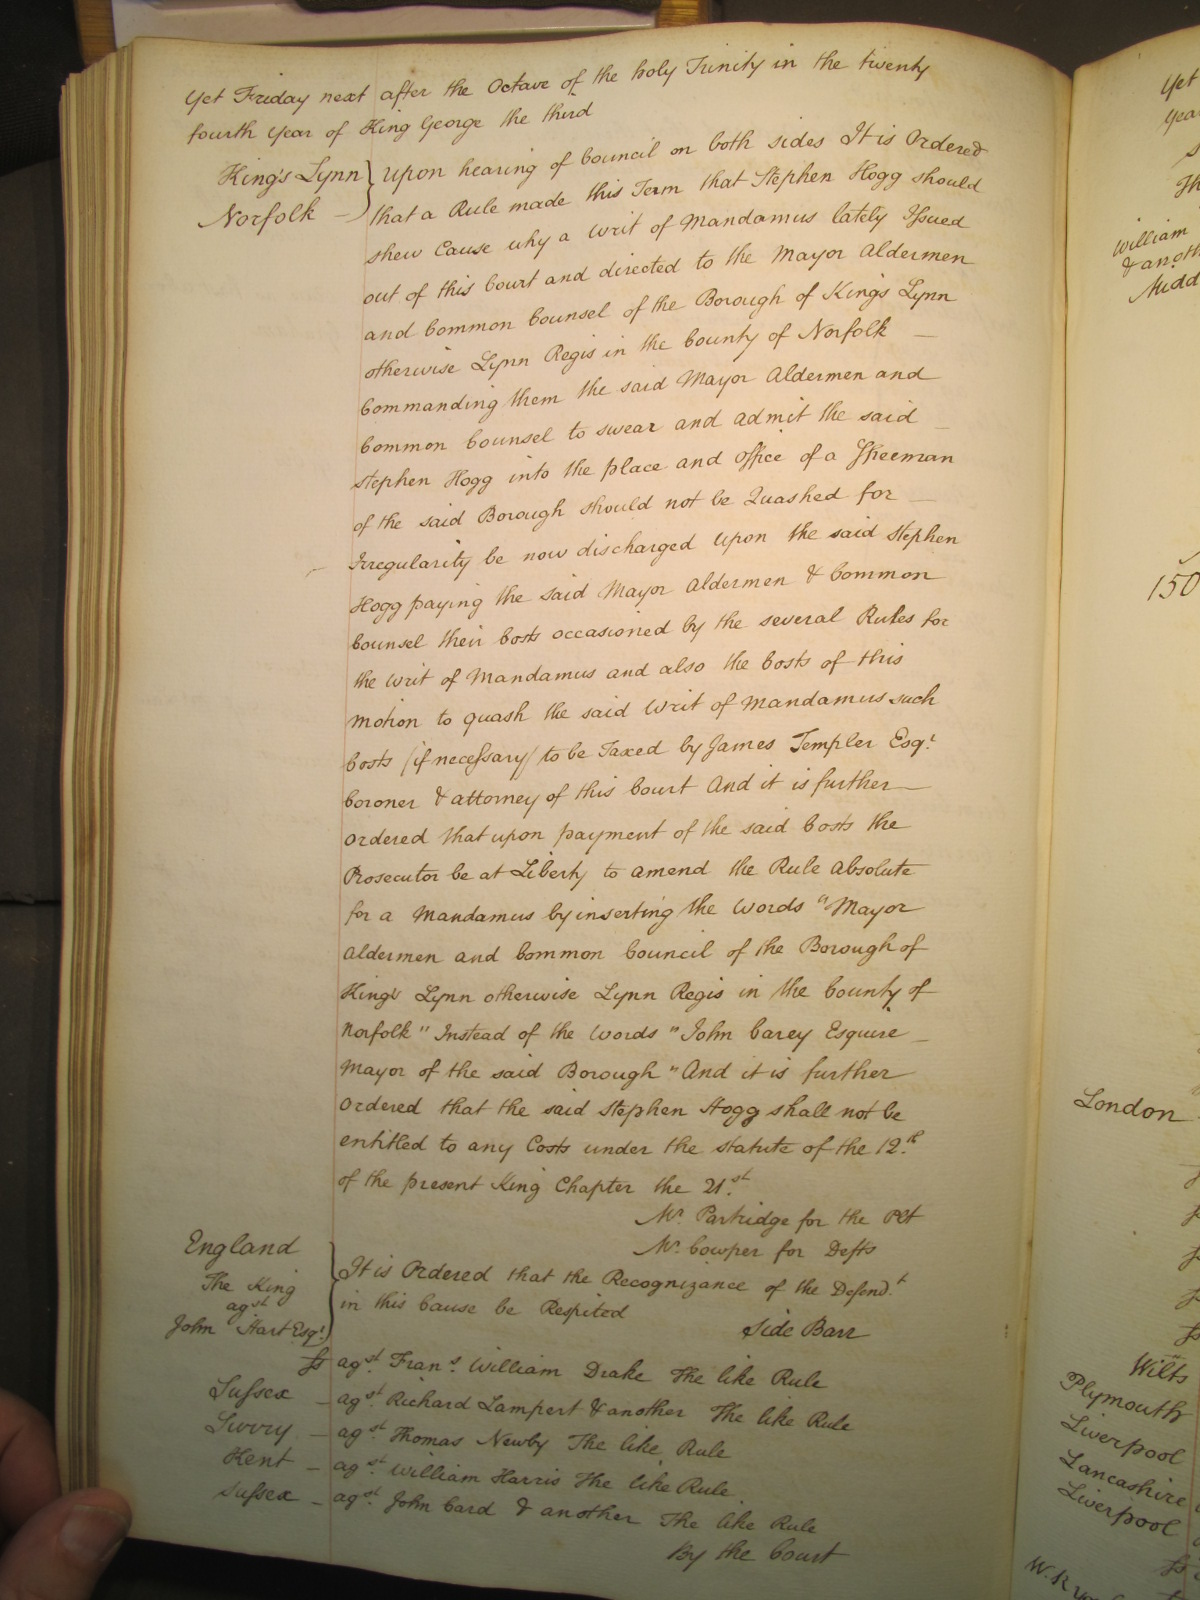 Yet Friday next after the Octave of the holy Trinity in the twenty
fourth year of King George the third
King's Lynn
Norfolk
Upon hearing of Council on both sides It is Ordered
that a Rule made this Term that Stephen Hogg should
shew Cause why a writ of Mandamus lately Issued
out of this Court and directed to the Mayor Aldermen
and Common Counsel of the Borough of Kings Lynn
otherwise Lynn Regis in the County of Norfolk
Commanding them the said Mayor Aldermen and
Common Counsel to swear and admit the said
Stephen Hogg into the place and Office of a Freeman
of the said Borough should not be Quashed for
Irregularity be now discharged Upon the said Stephen
Hogg paying the said Mayor Aldermen & Common
Counsel their Costs occasioned by the several Rules for
the writ of Mandamus and also the Costs of this
Motion to quash the said Writ of Mandamus such
Costs (if necessary) to be Taxed by James Templer Esqr.
Coroner & attorney of this Court And it is further
Ordered that upon payment of the said Costs the
Prosecutor be at Liberty to amend the Rule absolute
for a Mandamus by inserting the words "Mayor
Aldermen and Common Council of the Borough of
King's Lynn otherwise Lynn Regis in the County of
Norfolk" Instead of the words "John Carey Esquire
Mayor of the said Borough" And it is further
Ordered that the said Stephen Hogg shall not be
entitled to any Costs under the statute of the 12.th
of the present King Chapter the 21.st
Mr. Partridge for the Plt
Mr. Cowper for Defts
England
The King
agst
John Hart Esqr.
It is Ordered that the Recognizance of the Defend.t
in this Cause be Respited
Side Barr
ss agst. Frans. William Drake The like Rule
Sussex - agst. Richard Lampert & another The like Rule
Surry - agst. Thomas Newby The like Rule
Kent - agst. William Harris The like Rule
Sussex - agst. John Card & another The like Rule
By the Court
Yet
William
& anoth
Midd
150
London
Wilts
Plymouth
Liverpool
Lancashire
Liverpool